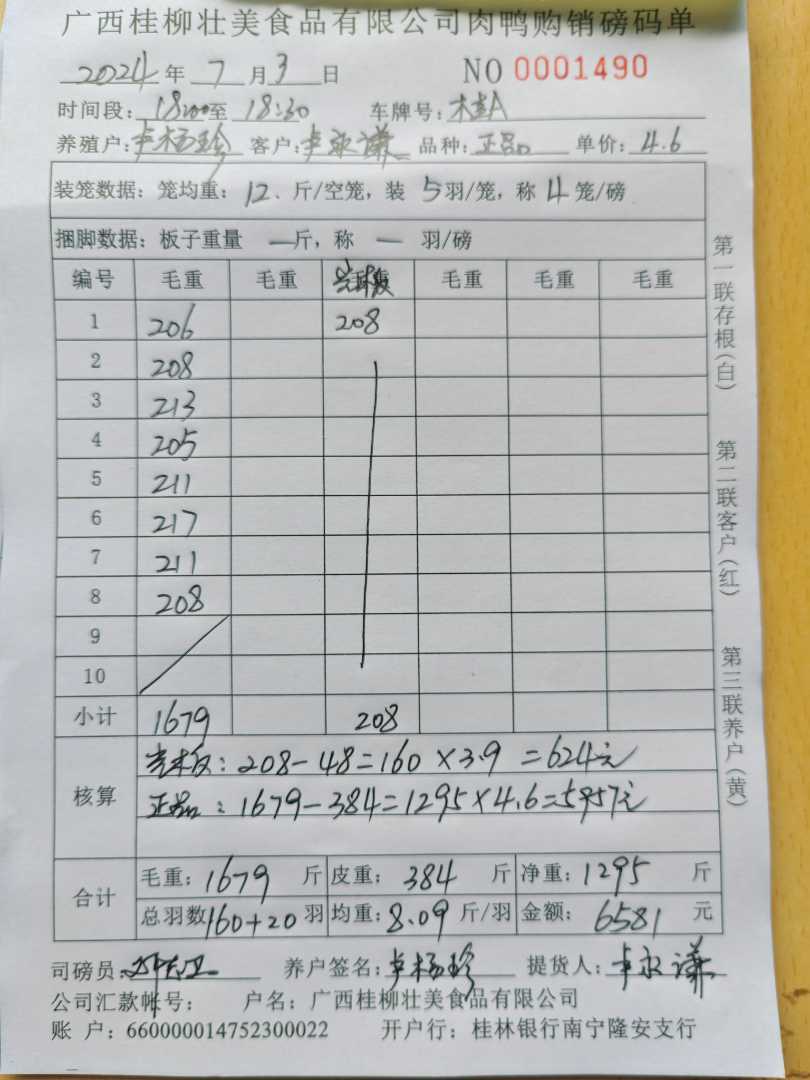 广西桂柳壮美食品有限公司肉鸭购销磅码单
2024 年 7 月 3 日 NO 0001490
时间段: 18:00至 18:30 车牌号: 桂A
养殖户: 卢杨珍 客户: 卢永谦 品种: 正品 单价: 4.6
装笼数据: 笼均重: 12、斤/空笼, 装 5羽/笼, 称 4 笼/磅
捆脚数据: 板子重量 一斤, 称 一 羽/磅
编号 毛重 毛重 毛重 毛重 毛重
1 206 208
2 208
3 213
4 205
5 211
6 217
7 211
8 208
9
10
小计 1679 208
核算
208-48=160×3.9=624元
正品: 1679-384=1295×4.6=5957元
合计
毛重: 1679 斤 皮重: 384 斤 净重: 1295 斤
总羽数160+20 羽 均重: 8.09 斤/羽 金额: 6581 元
司磅员: 养户签名: 卢杨珍 提货人: 卢永谦
公司汇款帐号: 户名: 广西桂柳壮美食品有限公司
账 户: 660000014752300022 开户行: 桂林银行南宁隆安支行
第一联存根(白)
第二联客户(红)
第三联养户(黄)